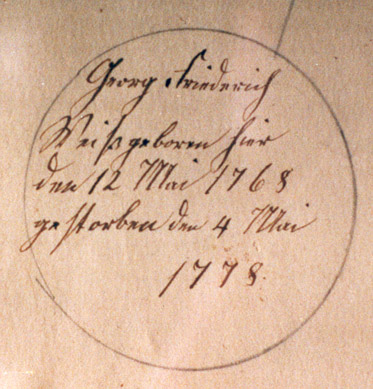 Georg Friederich
Weiß geboren hier
den 12 Mai 1768
gestorben den 4 Mai
1778.